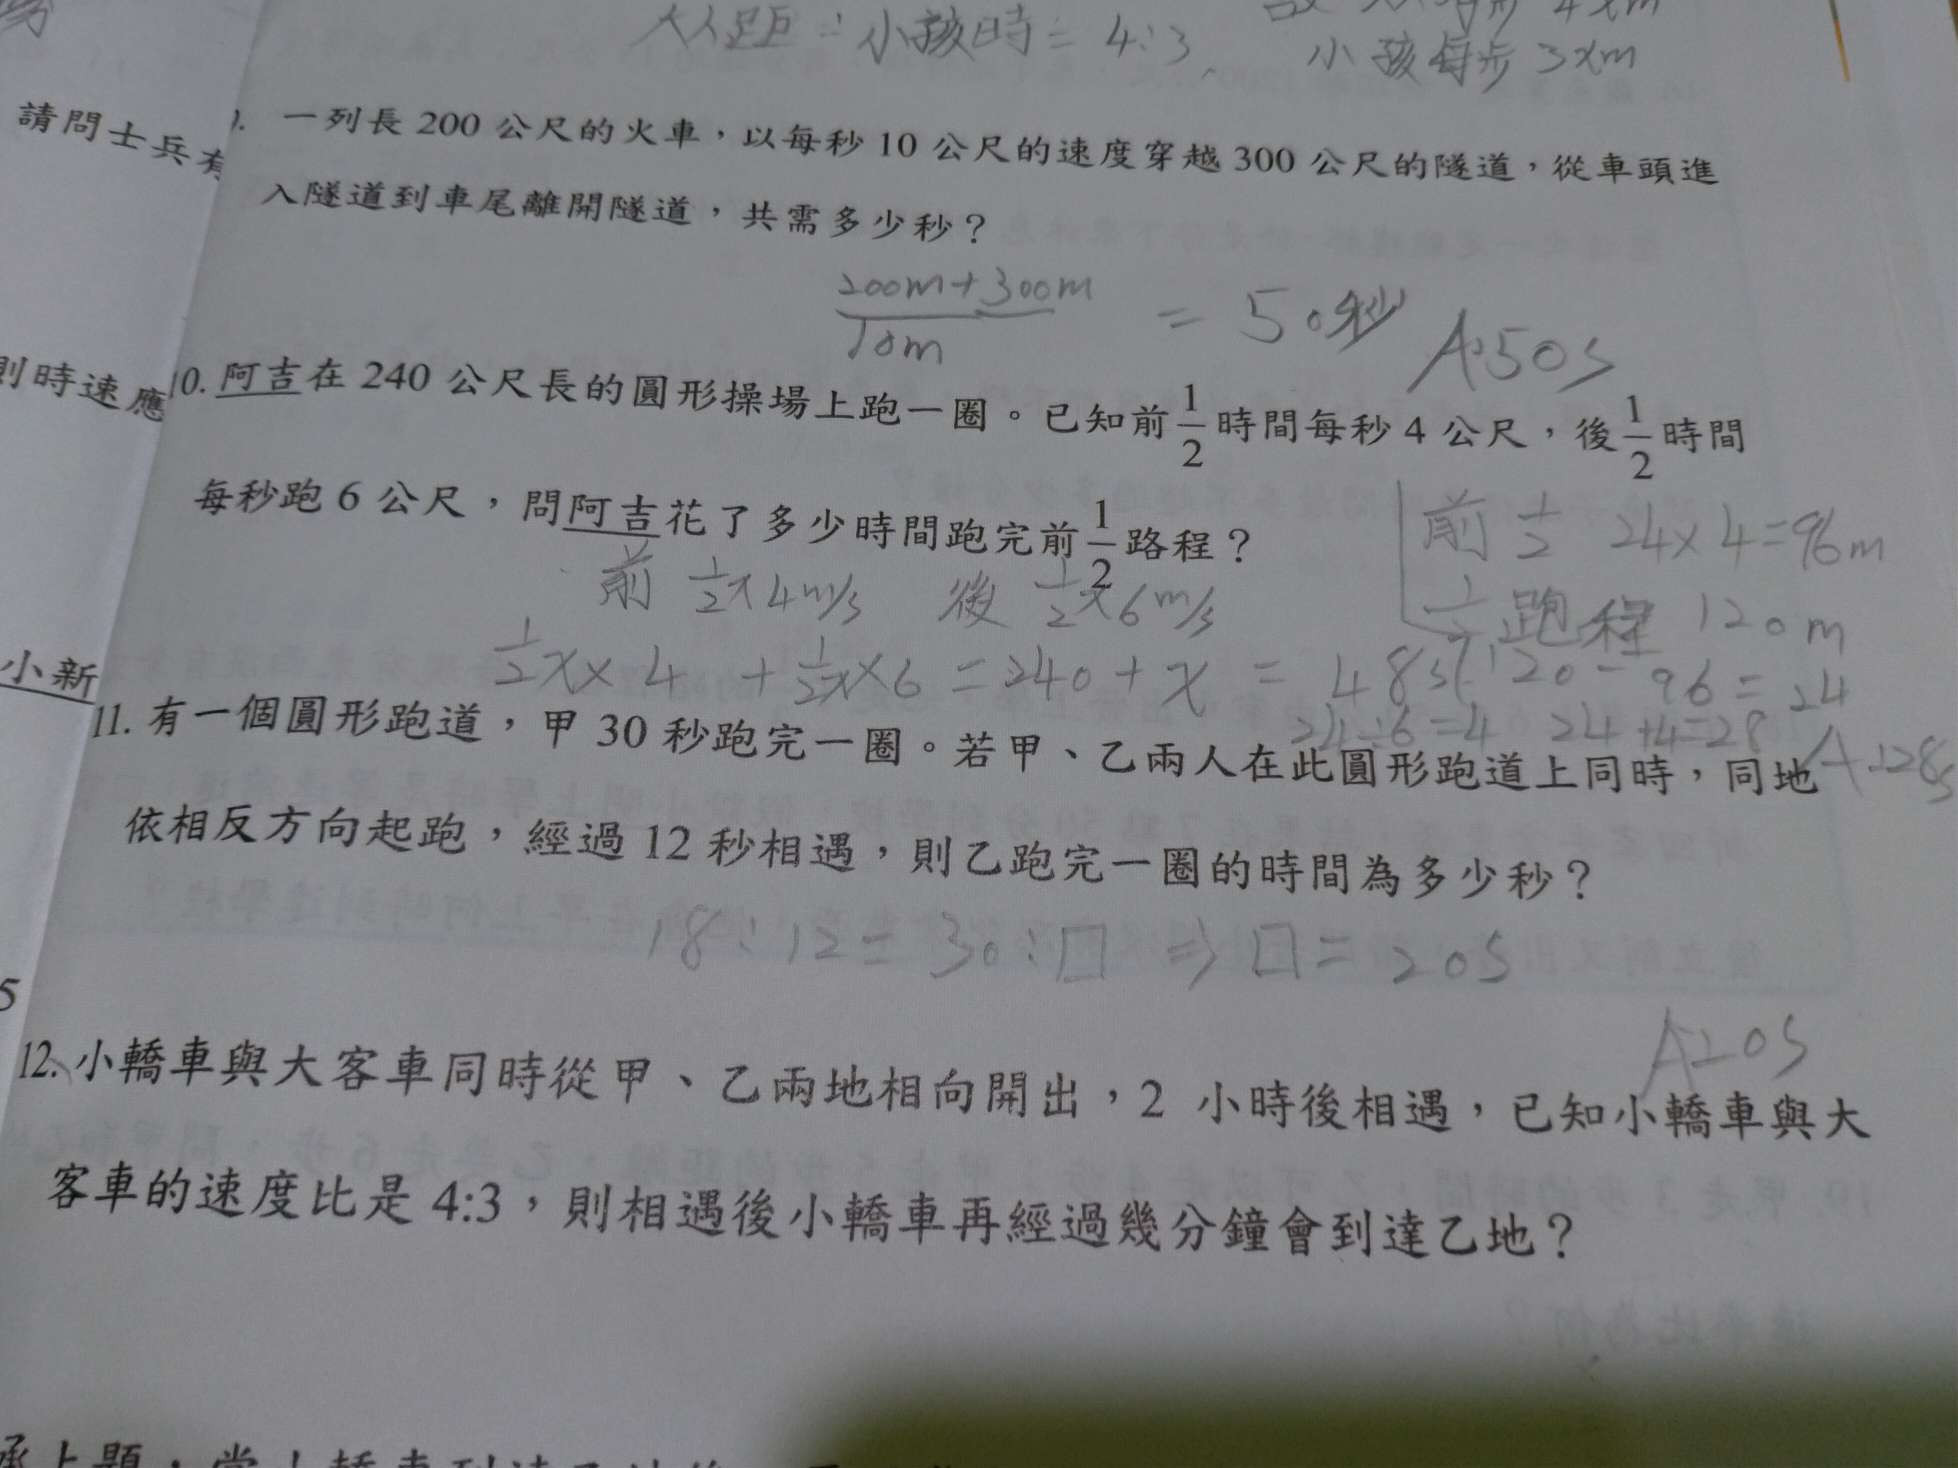 大人距:小孩時=4:3
小孩每步3xm
請問士兵有
一列長 200 公尺的火車，以每秒 10 公尺的速度穿越 300 公尺的隧道，從車頭進
入隧道到車尾離開隧道，共需多少秒？
200m+300m
10m
=50秒
A:50s
則時速應
10. 阿吉在 240 公尺長的圓形操場上跑一圈。已知前 1/2 時間每秒 4 公尺，後 1/2 時間
每秒跑 6 公尺，問阿吉花了多少時間跑完前 1/2 路程？
前 1/2 24×4=96m
前 1/2×4m/s 後 1/2×6m/s
1/2 跑程 120m
1/2x×4+1/2x×6=240+x=48s
120-96=24
24÷6=4 24+4=28
A:28s
小新
11. 有一個圓形跑道，甲 30 秒跑完一圈。若甲、乙兩人在此圓形跑道上同時，同地
依相反方向起跑，經過 12 秒相遇，則乙跑完一圈的時間為多少秒？
18:12=30:□⇒□=20s
A20s
5
12. 小轎車與大客車同時從甲、乙兩地相向開出，2 小時後相遇，已知小轎車與大
客車的速度比是 4:3，則相遇後小轎車再經過幾分鐘會到達乙地？
承上題，當小轎車到達乙地後